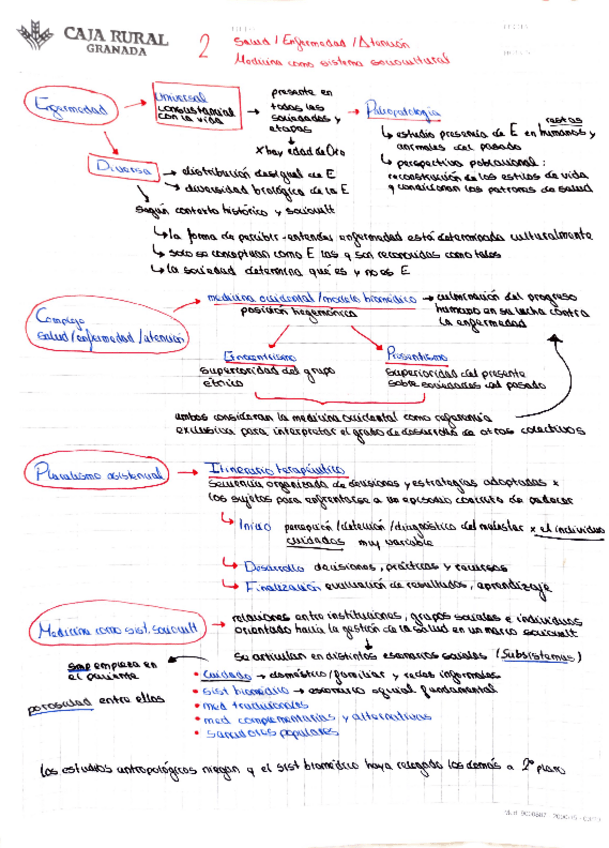 CAJA RURAL
GRANADA
2
Salud / Enfermedad / Atención
Medicina como sistema sociocultural
Enfermedad
Universal
consustancial
con la vida
presente en
todas las
sociedades y
etapas
x hay edad de Oro
Paleopatología
restos
↳ estudio presencia de E en humanos y
animales del pasado
↳ perspectiva poblacional:
reconstrucción de los estilos de vida
q condicionan los patrones de salud
Diversa
→ distribución desigual de E
→ diversidad biológica de la E
según contexto histórico y sociocult
↳ la forma de percibir-entender enfermedad está determinada culturalmente
↳ solo se conceptúan como E las q son reconocidas como tales
↳ la sociedad determina qué es y no es E
Complejo
salud/enfermedad/atención
medicina occidental/modelo biomédico → culminación del progreso
posición hegemónica
humano en su lucha contra
la enfermedad
Etnocentrismo
superioridad del grupo
étnico
Presentismo
superioridad del presente
sobre sociedades del pasado
ambos consideran la medicina occidental como referencia
exclusiva para interpretar el grado de desarrollo de otros colectivos
Pluralismo asistencial
Itinerario terapéutico
Secuencia organizada de decisiones y estrategias adoptadas x
los sujetos para enfrentarse a un episodio concreto de padecer
↳ Inicio percepción/detención/diagnóstico del malestar x el individuo
cuidados muy variable
↳ Desarrollo decisiones, prácticas y recursos
↳ Finalización evaluación de resultados, aprendizaje
Medicina como sist. sociocult
relaciones entre instituciones, grupos sociales e individuos
orientado hacia la gestión de la salud en un marco sociocult
Se articulan en distintos escenarios sociales (Subsistemas)
smp empieza en
el paciente
porosidad entre ellos
• Cuidado → doméstico/familiar y redes informales
• sist biomédico → escenario oficial fundamental
• med tradicionales
• med complementarias y alternativas
• sanadores populares
los estudios antropológicos niegan q el sist biomédico haya relegado los demás a 2º plano